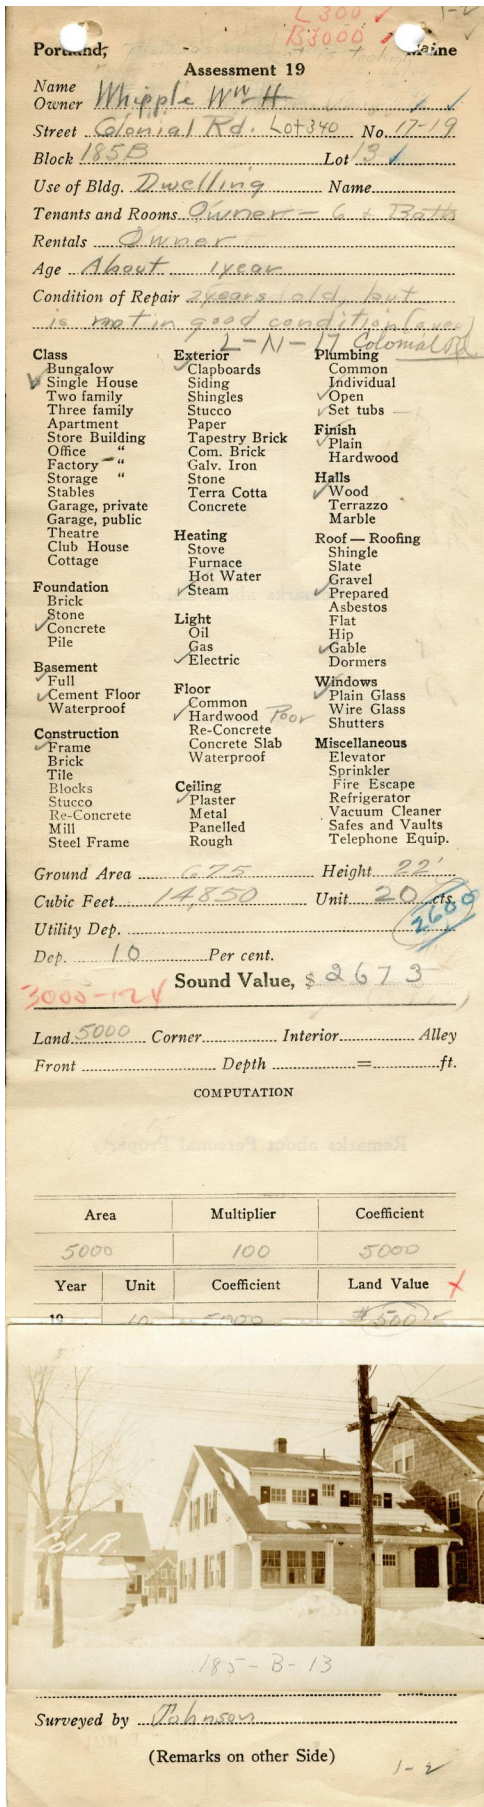 L 300 ✓
B 3000 ✓
1-2 ✓
Portland, Maine
Assessment 19
Name
Owner Whipple Wm H ✓ ✓
Street Colonial Rd. Lot 340 No. 17-19
Block 185B Lot 13 ✓
Use of Bldg. Dwelling Name
Tenants and Rooms Owner - 6 + Bath
Rentals Owner
Age About 1 year
Condition of Repair 2 years old, but
is not in good condition (over)
L-N-17 Colonial Rd.
Class
✓ Bungalow
✓ Single House
Two family
Three family
Apartment
Store Building
Office "
Factory "
Storage "
Stables
Garage, private
Garage, public
Theatre
Club House
Cottage
Foundation
Brick
Stone
✓ Concrete
Pile
Basement
✓ Full
✓ Cement Floor
Waterproof
Construction
✓ Frame
Brick
Tile
Blocks
Stucco
Re-Concrete
Mill
Steel Frame
Exterior
✓ Clapboards
Siding
Shingles
Stucco
Paper
Tapestry Brick
Com. Brick
Galv. Iron
Stone
Terra Cotta
Concrete
Heating
Stove
Furnace
Hot Water
✓ Steam
Light
Oil
Gas
✓ Electric
Floor
Common
✓ Hardwood Poor
Re-Concrete
Concrete Slab
Waterproof
Ceiling
✓ Plaster
Metal
Panelled
Rough
Plumbing
Common
Individual
✓ Open
✓ Set tubs — 1
Finish
✓ Plain
Hardwood
Halls
✓ Wood
Terrazzo
Marble
Roof — Roofing
Shingle
Slate
Gravel
✓ Prepared
Asbestos
Flat
Hip
✓ Gable
Dormers
Windows
✓ Plain Glass
Wire Glass
Shutters
Miscellaneous
Elevator
Sprinkler
Fire Escape
Refrigerator
Vacuum Cleaner
Safes and Vaults
Telephone Equip.
Ground Area 675 Height 22'
Cubic Feet 14,850 Unit 20 cts.
2600
Utility Dep.
Dep. 10 Per cent.
Sound Value, $ 2673
3000-12 ✓
Land 5000 Corner Interior Alley
Front Depth = ft.
COMPUTATION
Remarks about Personal Property
Area Multiplier Coefficient
5000 100 5000
Year Unit Coefficient Land Value X
19 10 5000 $500 ✓
17
Col. R.
185-B-13
Surveyed by Johnson
(Remarks on other Side)
1-2